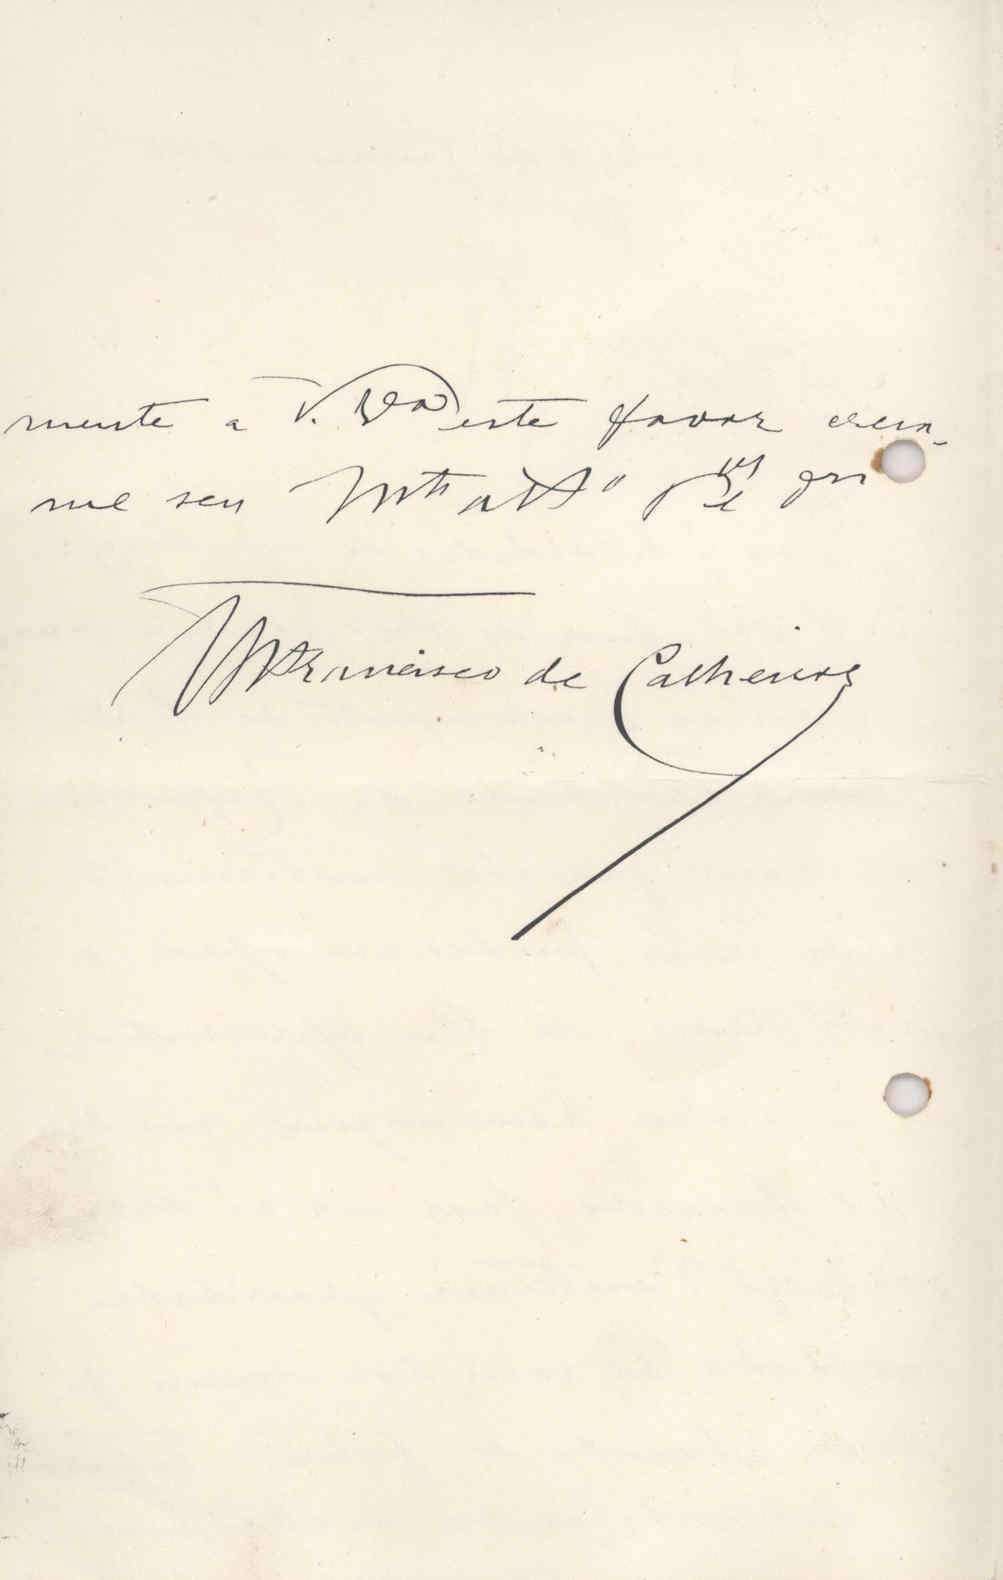 mente a V. Exª este favor creia-
me seu Mtº Attº
Francisco de Calheiros